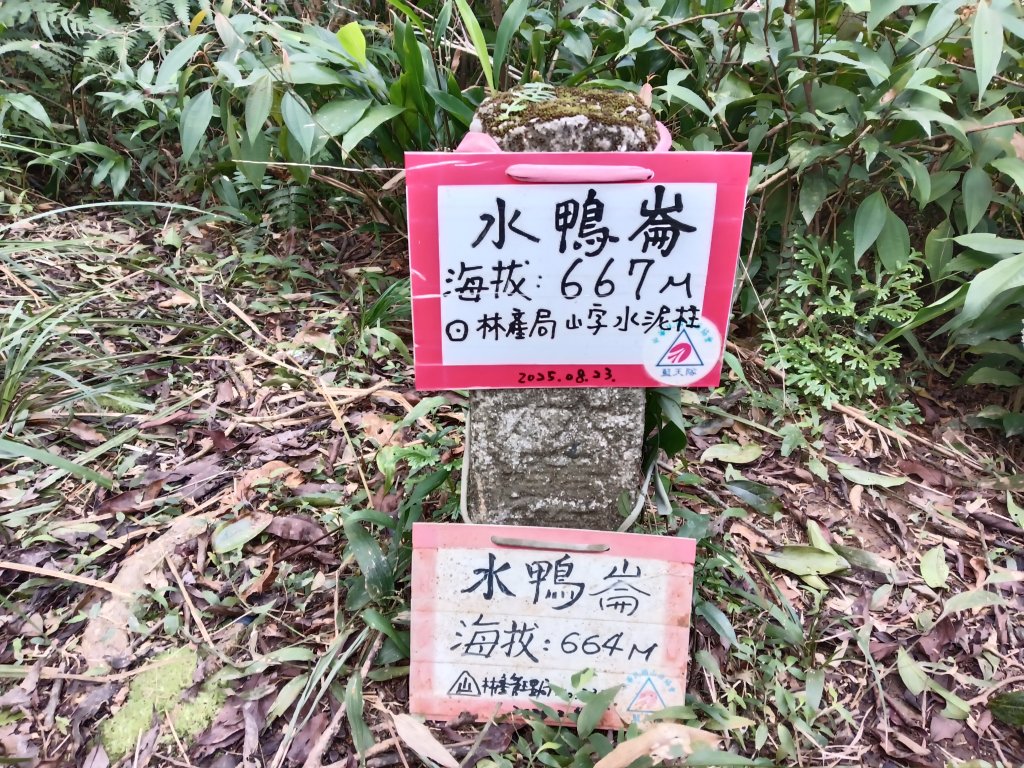 水鴨崙
海拔:667M
林產局山字水泥柱
藍天隊
2025.08.23.
水鴨崙
海拔:664M
山 林產